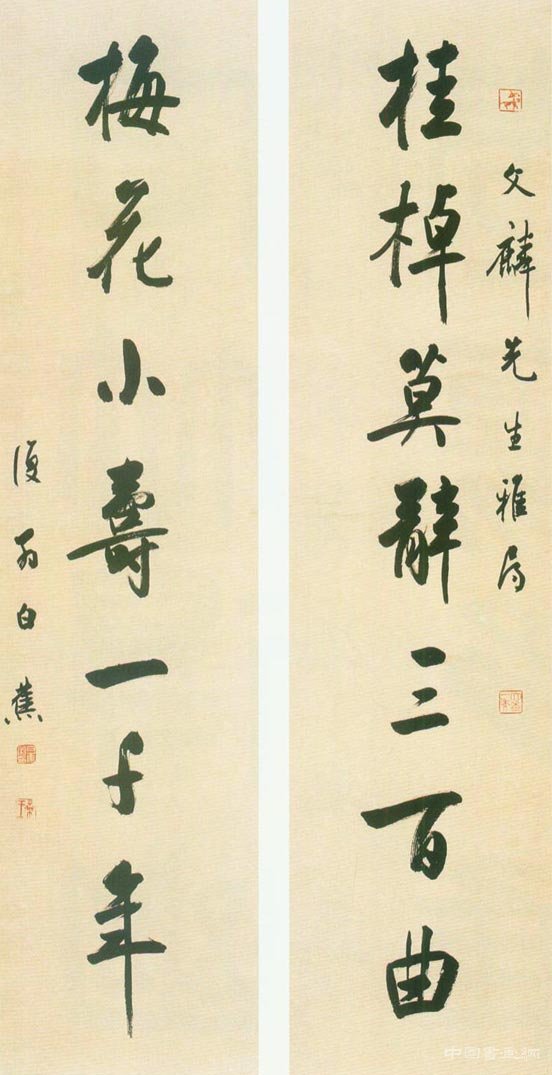 文麟先生雅属
桂棹莫辞三百曲
梅花小壽一千年
復翁白蕉
中国書画網